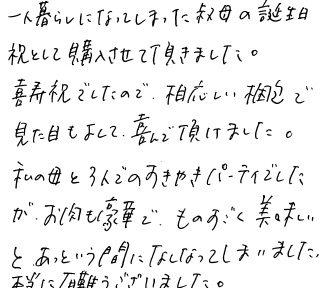 一人暮らしになってしまった叔母の誕生日
祝として購入させて頂きました。
喜寿祝でしたので、相応しい梱包で
見た目もよして、喜んで頂けました。
私の母と3人でのすきやきパーティでした
が、お肉も豪華で、ものすごく美味しい
と、あっという間になくなってしまいました。
本当に有難うございました。